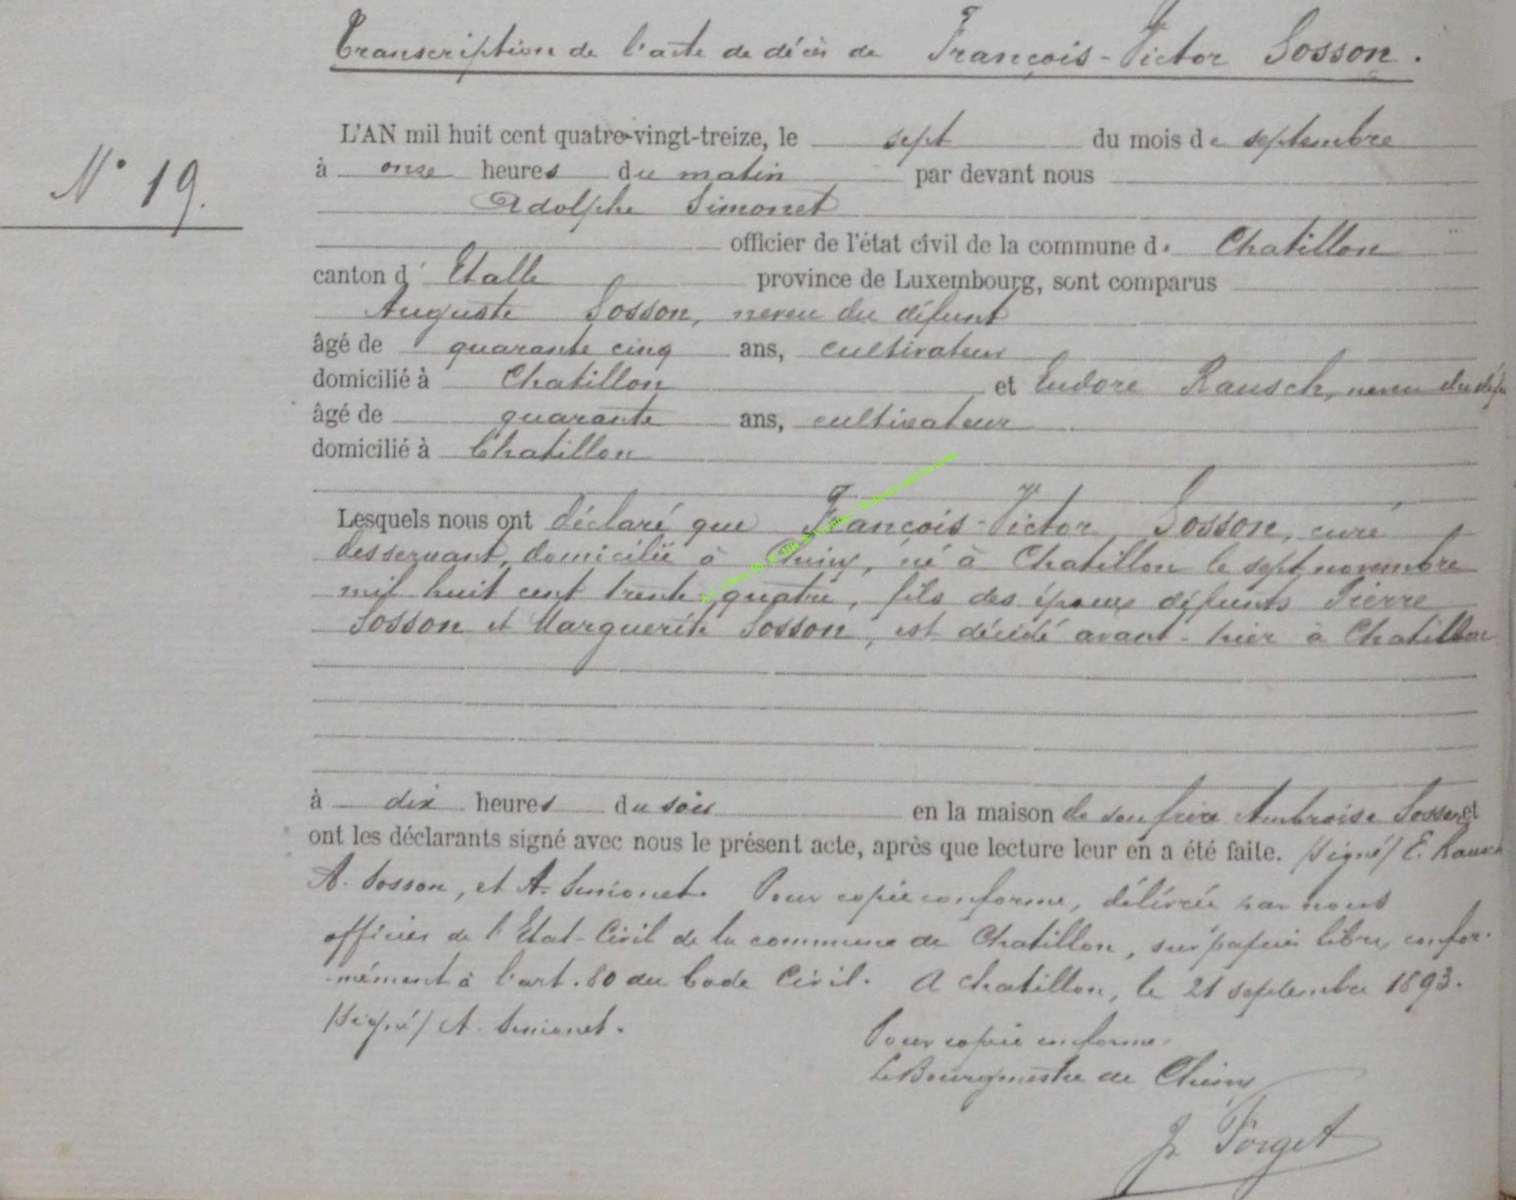 Transcription de l'acte de décès de François-Victor Sosson.
L'AN mil huit cent quatre-vingt-treize, le sept du mois de septembre
N° 19.
à onze heures du matin par devant nous
Adolphe Simonet
officier de l'état civil de la commune de Chatillon
canton d' Etalle province de Luxembourg, sont comparus
Auguste Sosson, neveu du défunt
âgé de quarante cinq ans, cultivateur
domicilié à Chatillon et Eudore Rausch, neveu du
âgé de quarante ans, cultivateur
domicilié à Chatillon
Lesquels nous ont déclaré que François-Victor Sosson, curé
desservant, domicilié à Chiny, né à Chatillon le sept novembre
mil huit cent trente-quatre, fils des époux défunts Pierre
Sosson et Marguerite Sosson, est décédé avant-hier à Chatillon
à dix heures du soir en la maison de son frère Ambroise Sosson, et
ont les déclarants signé avec nous le présent acte, après que lecture leur en a été faite. /signé/ E. Rausch
A. Sosson, et A. Simonet. Pour copie conforme, délivrée par nous
officier de l'Etat-Civil de la commune de Chatillon, sur papier libre, confor-
mément à l'art. 80 du Code Civil. A Chatillon, le 21 septembre 1893.
/signé/ A. Simonet.
Pour copie conforme.
Le Bourgmestre de Chiny
J. Forget